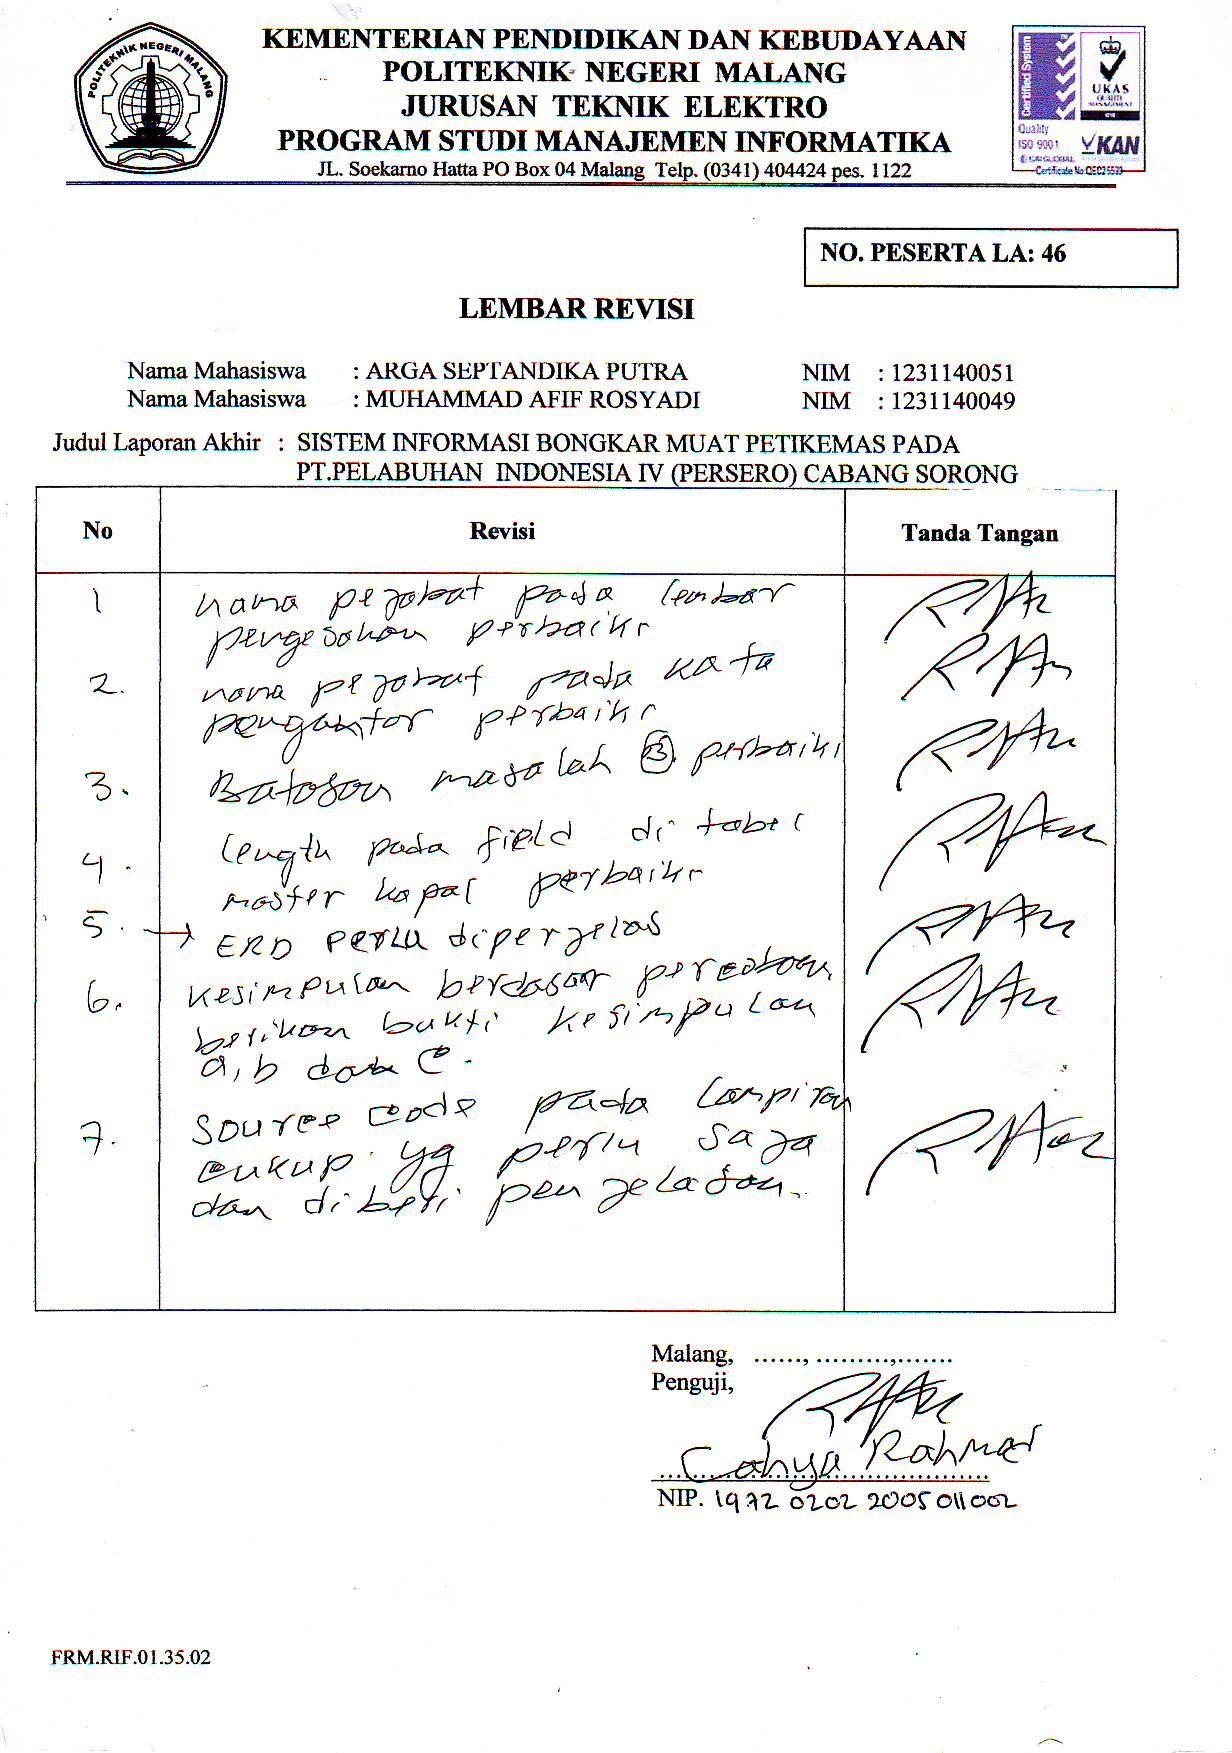 POLITEKNIK NEGERI MALANG
KEMENTERIAN PENDIDIKAN DAN KEBUDAYAAN
POLITEKNIK NEGERI MALANG
JURUSAN TEKNIK ELEKTRO
PROGRAM STUDI MANAJEMEN INFORMATIKA
JL. Soekarno Hatta PO Box 04 Malang Telp. (0341) 404424 pes. 1122
Certified System
UKAS
QUALITY
MANAGEMENT
Quality
ISO 9001
KAN
SAI GLOBAL
NO. PESERTA LA: 46
LEMBAR REVISI
Nama Mahasiswa : ARGA SEPTANDIKA PUTRA NIM : 1231140051
Nama Mahasiswa : MUHAMMAD AFIF ROSYADI NIM : 1231140049
Judul Laporan Akhir : SISTEM INFORMASI BONGKAR MUAT PETIKEMAS PADA
PT.PELABUHAN INDONESIA IV (PERSERO) CABANG SORONG
No Revisi Tanda Tangan
1 nama pejabat pada lembar
pengesahan perbaiki
2. nama pejabat pada kata
pengantar perbaiki
3. Batasan masalah 3 perbaiki
4. length pada field di tabel
master kapal perbaiki
5. → ERD perlu diperjelas
6. Kesimpulan berdasar percobaan,
berikan bukti kesimpulan
a, b dan c.
7. Source code pada lampiran
cukup yg perlu saja
dan diberi penjelasan.
Malang, ......, .........,.......
Penguji,
Cahya Rahmad
NIP. 1972 0202 2005 011002
FRM.RIF.01.35.02